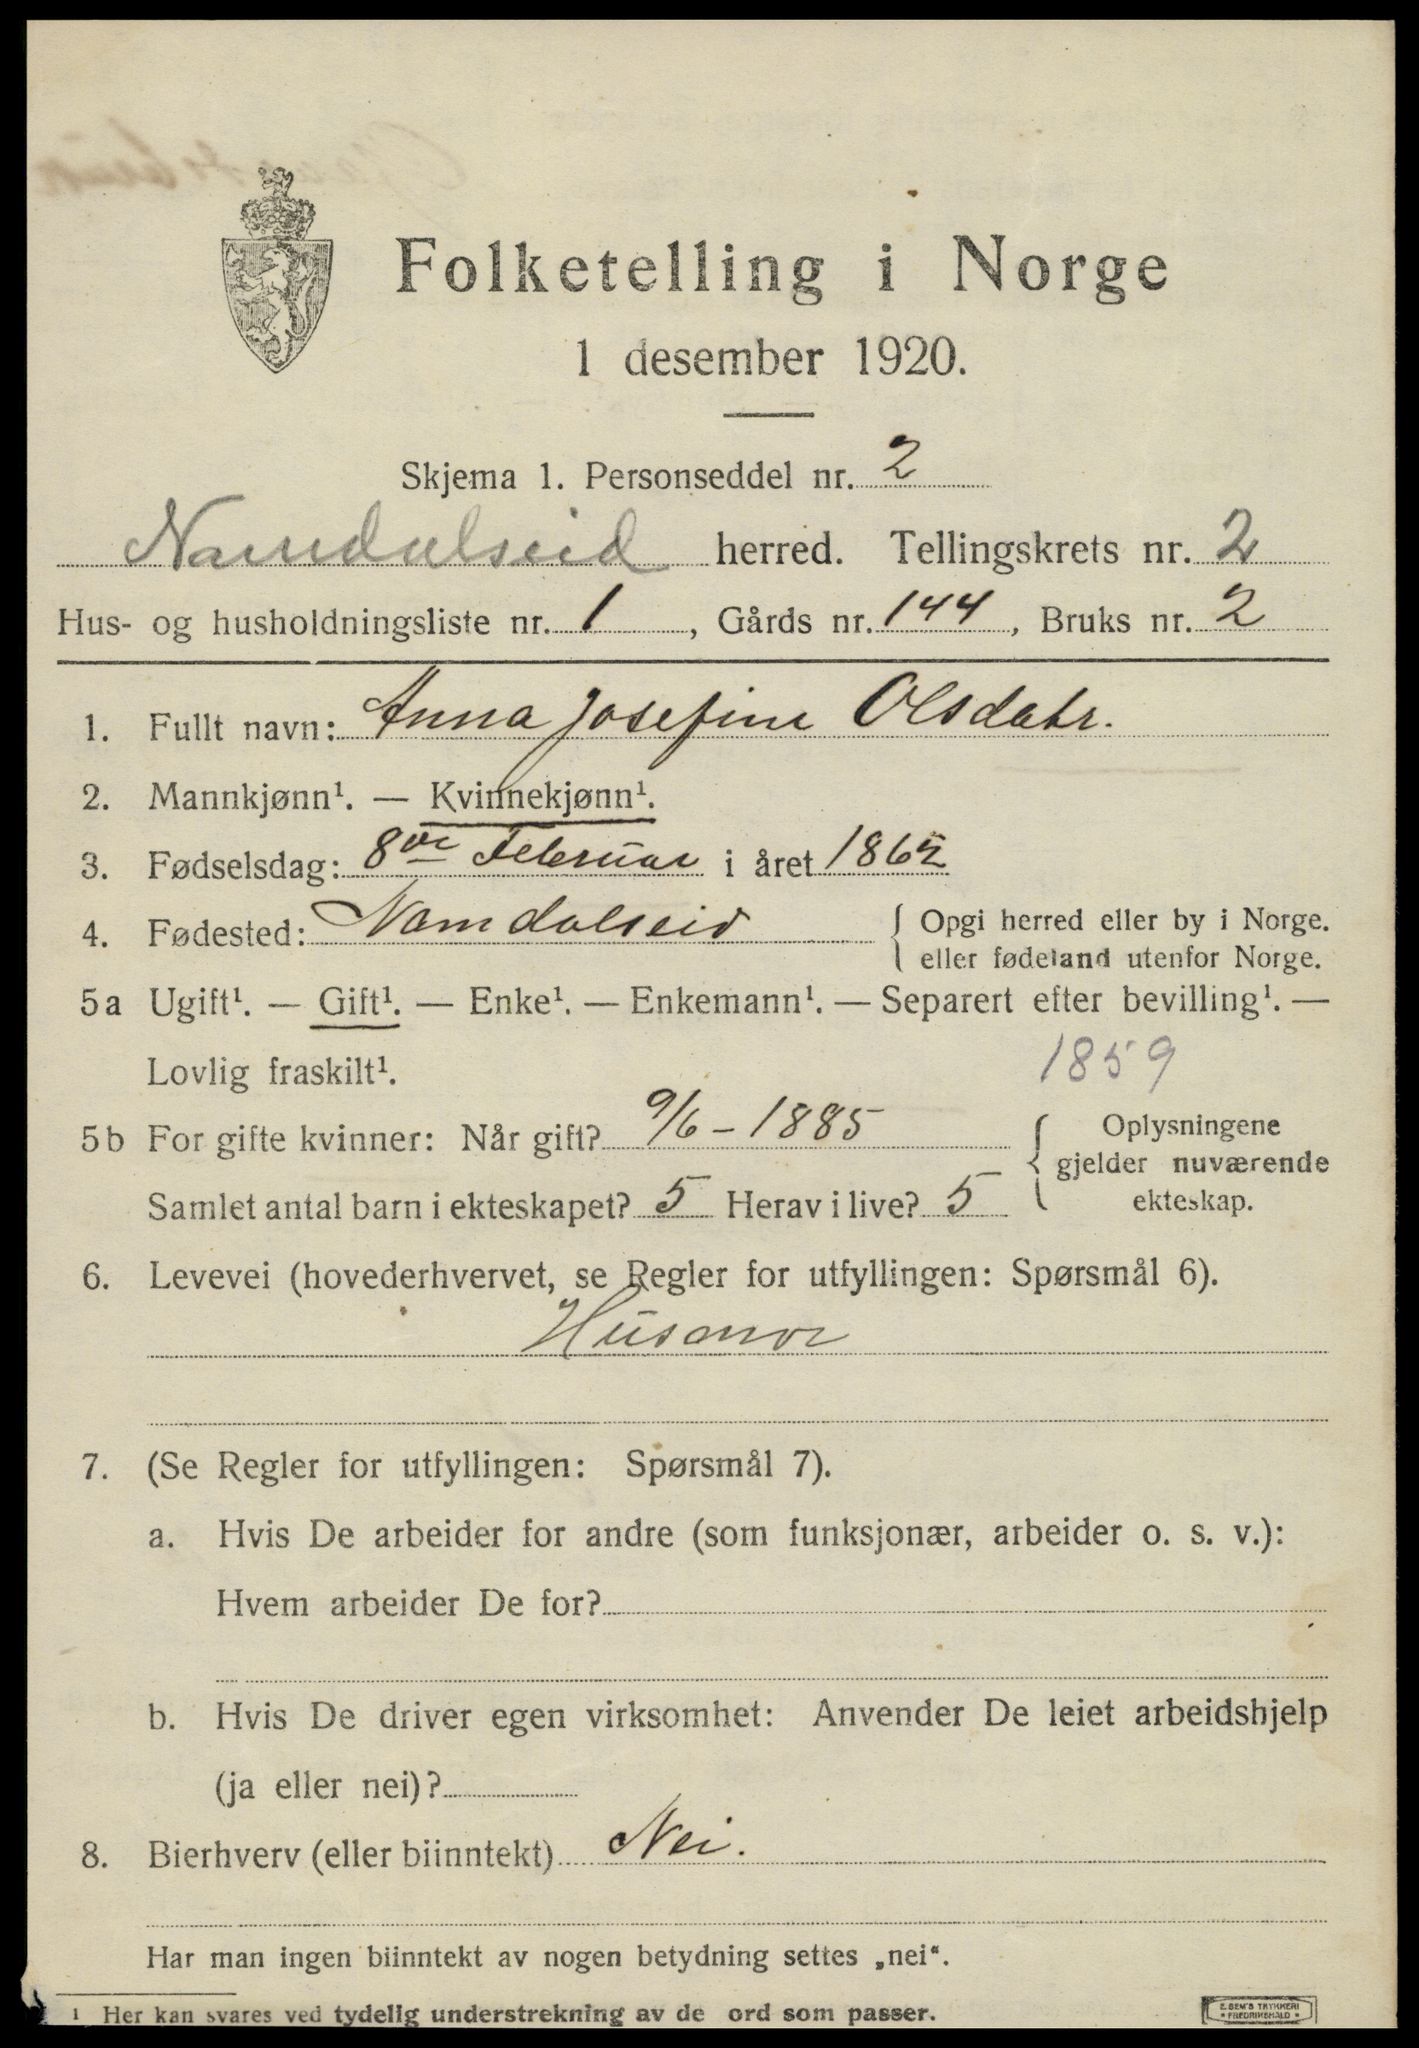 Folketelling i Norge
1 desember 1920.
Skjema 1. Personseddel nr. 2
Namdalseid herred. Tellingskrets nr. 2
Hus- og husholdningsliste nr. 1, Gårds nr. 144, Bruks nr. 2
1. Fullt navn: Anna Josefine Olsdatr.
2. Mannkjønn¹. — Kvinnekjønn¹.
3. Fødselsdag: 8de Februar i året
4. Fødested: Namdalseid { Opgi herred eller by i Norge.
eller fødeland utenfor Norge.
5a Ugift¹. — Gift¹. — Enke¹. — Enkemann¹. — Separert efter bevilling¹. —
Lovlig fraskilt¹. 1859
5b For gifte kvinner: Når gift? 9/6 – 1885 { Oplysningene
gjelder nuværende
Samlet antal barn i ekteskapet? 5 Herav i live? 5 ekteskap.
6. Levevei (hovederhvervet, se Regler for utfyllingen: Spørsmål 6).
Husmor
7. (Se Regler for utfyllingen: Spørsmål 7).
a. Hvis De arbeider for andre (som funksjonær, arbeider o. s. v.):
Hvem arbeider De for?
b. Hvis De driver egen virksomhet: Anvender De leiet arbeidshjelp
(ja eller nei)?
8. Bierhverv (eller biinntekt) Nei.
Har man ingen biinntekt av nogen betydning settes „nei".
¹ Her kan svares ved tydelig understrekning av de ord som passer.
E. SEM'S TRYKKERI
• FREDRIKSHALD •